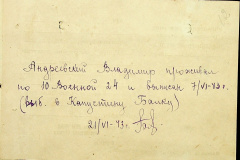 Андреевский Владимир проживал
по 10 Военной 24 и выписан 7/VI-43г.
(выб. в Капустину Балку)
21/VI-43г.